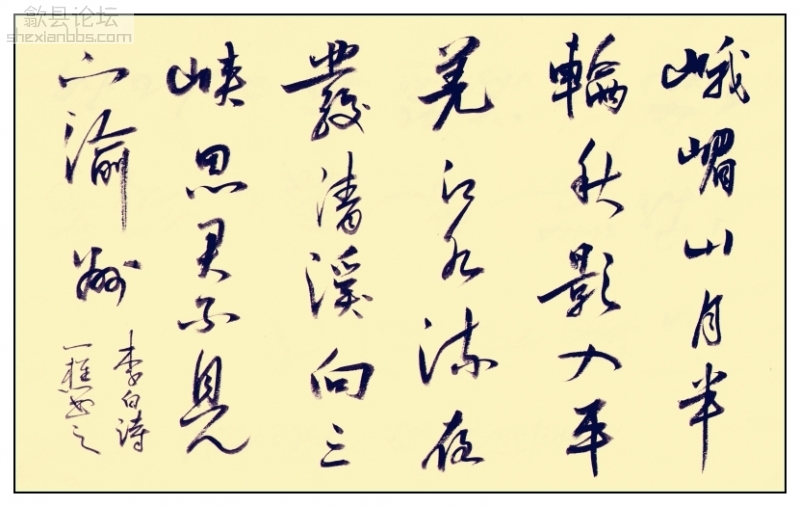 歙县论坛
shexianbbs.com
峨嵋山月半
輪秋影入平
羌江水流夜
發清溪向三
峡思君不見
下渝州
李白詩
一樵書之